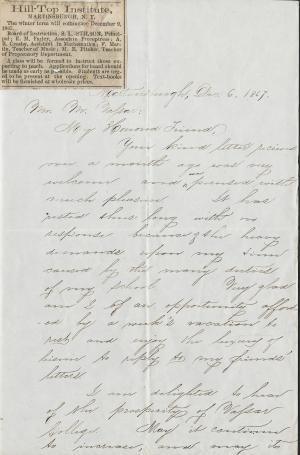 Hill-Top Institute,
MARTINSBURGH, N. Y.
The winter term will commence December 9,
1867.
Board of Instruction, S. L. Principal;
E. M. Farley, Associate Preceptress; A.
R. Crosby, Assistant in Mathematics; F. Mar-
Teacher of Music; M. E. Pitcher, Teacher
of Preparatory Department.
A class will be formed to instruct those ex-
pecting to teach. Applications for board should
be made as early as possible. Students are reques-
ted to be present at the opening. Text-books
will be furnished at wholesale prices.
Martinsburgh, Dec. 6, 1867.
Mr. M. Vassar;
My Honored Friend,
Your kind letter received
over a month ago was very
welcome and was perused with
much pleasure. It has
rested thus long with no
response because of the heavy
demands upon my time
caused by the many duties
of my school. Very glad
am I of an opportunity afford
-ed by a week's vacation to
rest and enjoy the luxury of
leisure to reply to my friends'
letters.
I am delighted to hear
of the prosperity of Vassar
College. May it continue
to increase, and may its